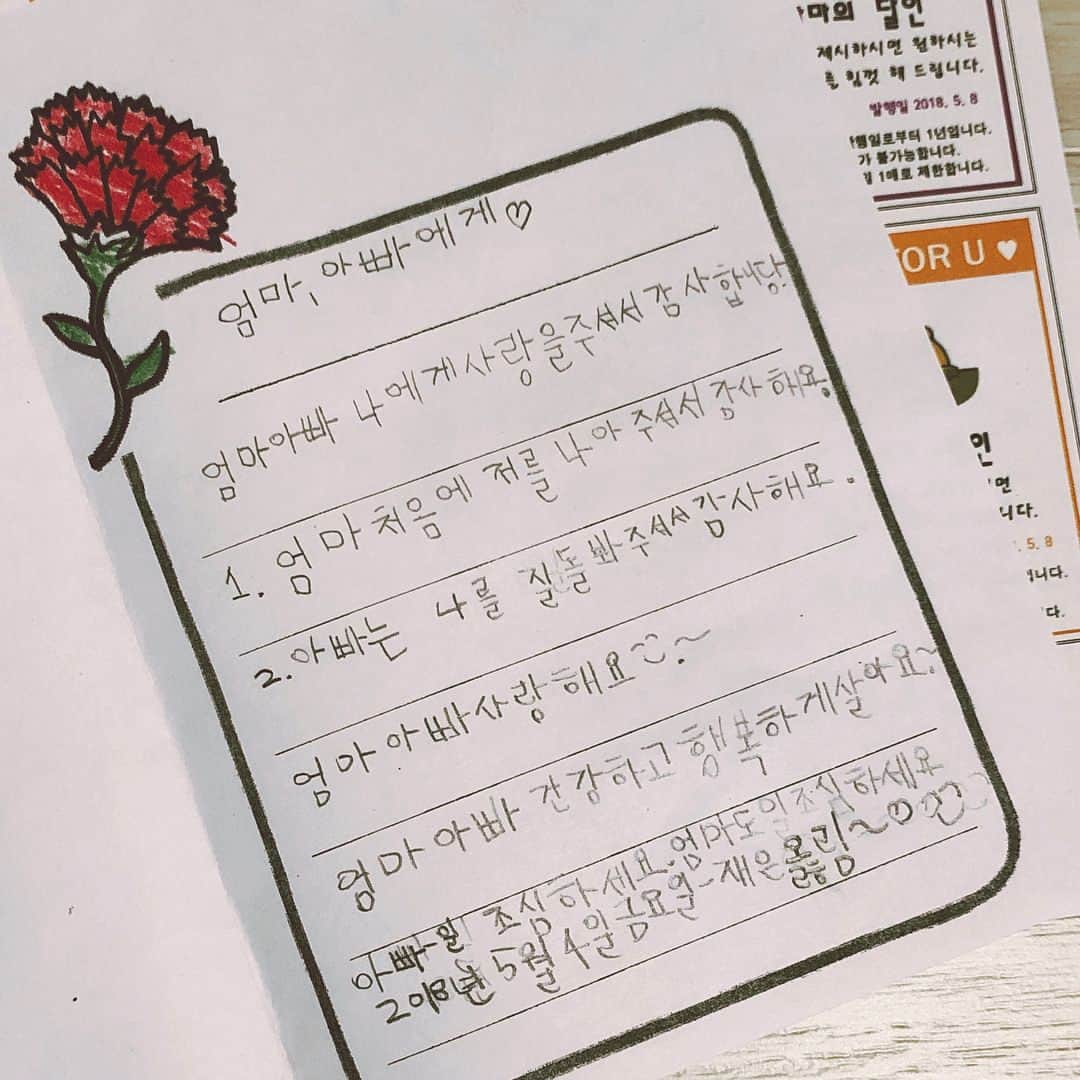 엄마, 아빠에게♡
엄마아빠 나에게사랑을주셔서감사합니당.
1. 엄마처음에 저를 나아 주셔서 감사해용.
2. 아빠는 나를 질돌봐주셔서감사해요.
엄마아빠사랑해요~
엄마아빠 간강하고행복하게살아요~
아빠일 조심하세요.엄마도일조심하세요
2018년 5월 4일금요일-재은올림~♡
마의 달인
제시하시면 원하시는
를 힘껏 해 드립니다.
발행일 2018. 5. 8
행일로부터 1년입니다.
가 불가능합니다.
1매로 제한합니다.
FOR U ♥
인
면
니다.
. 5. 8
니다.
다.